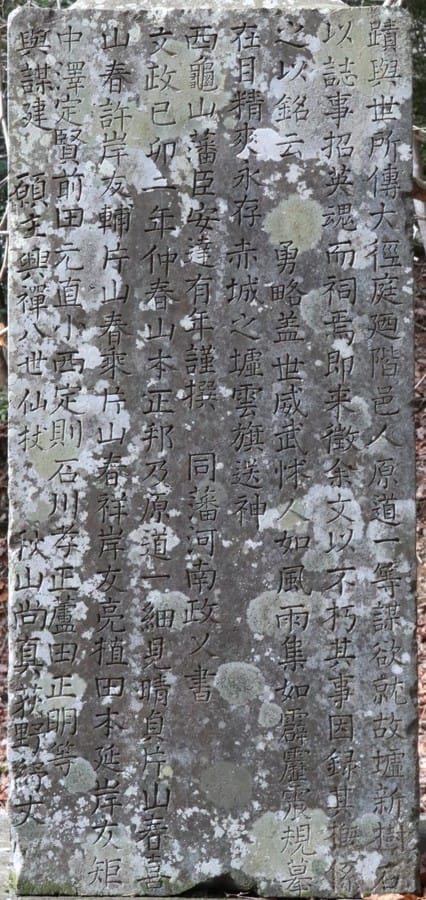 蹟與世所傳大徑庭廼階邑人原道一等謀欲就故墟新樹石
以誌事招英魂而祠焉即来徵余文以不朽其事因録其槩係
之以銘云　勇略盖世威武怵人如風雨集如霹靂震規墓
在目精爽永存赤城之墟雲旗送神
西龜山藩臣安達有年謹撰　同藩河南政乂書
文政己卯二年仲春山本正邦乃原道一細見晴貞片山春喜
山春許岸友輔片山春乘片山春祥岸友亮植田本延岸友矩
中澤定賢前田元直小西定則石川孝正蘆田正明等
與謀建　願主興禪八世仙杖　秋山尚真荻野綺丈